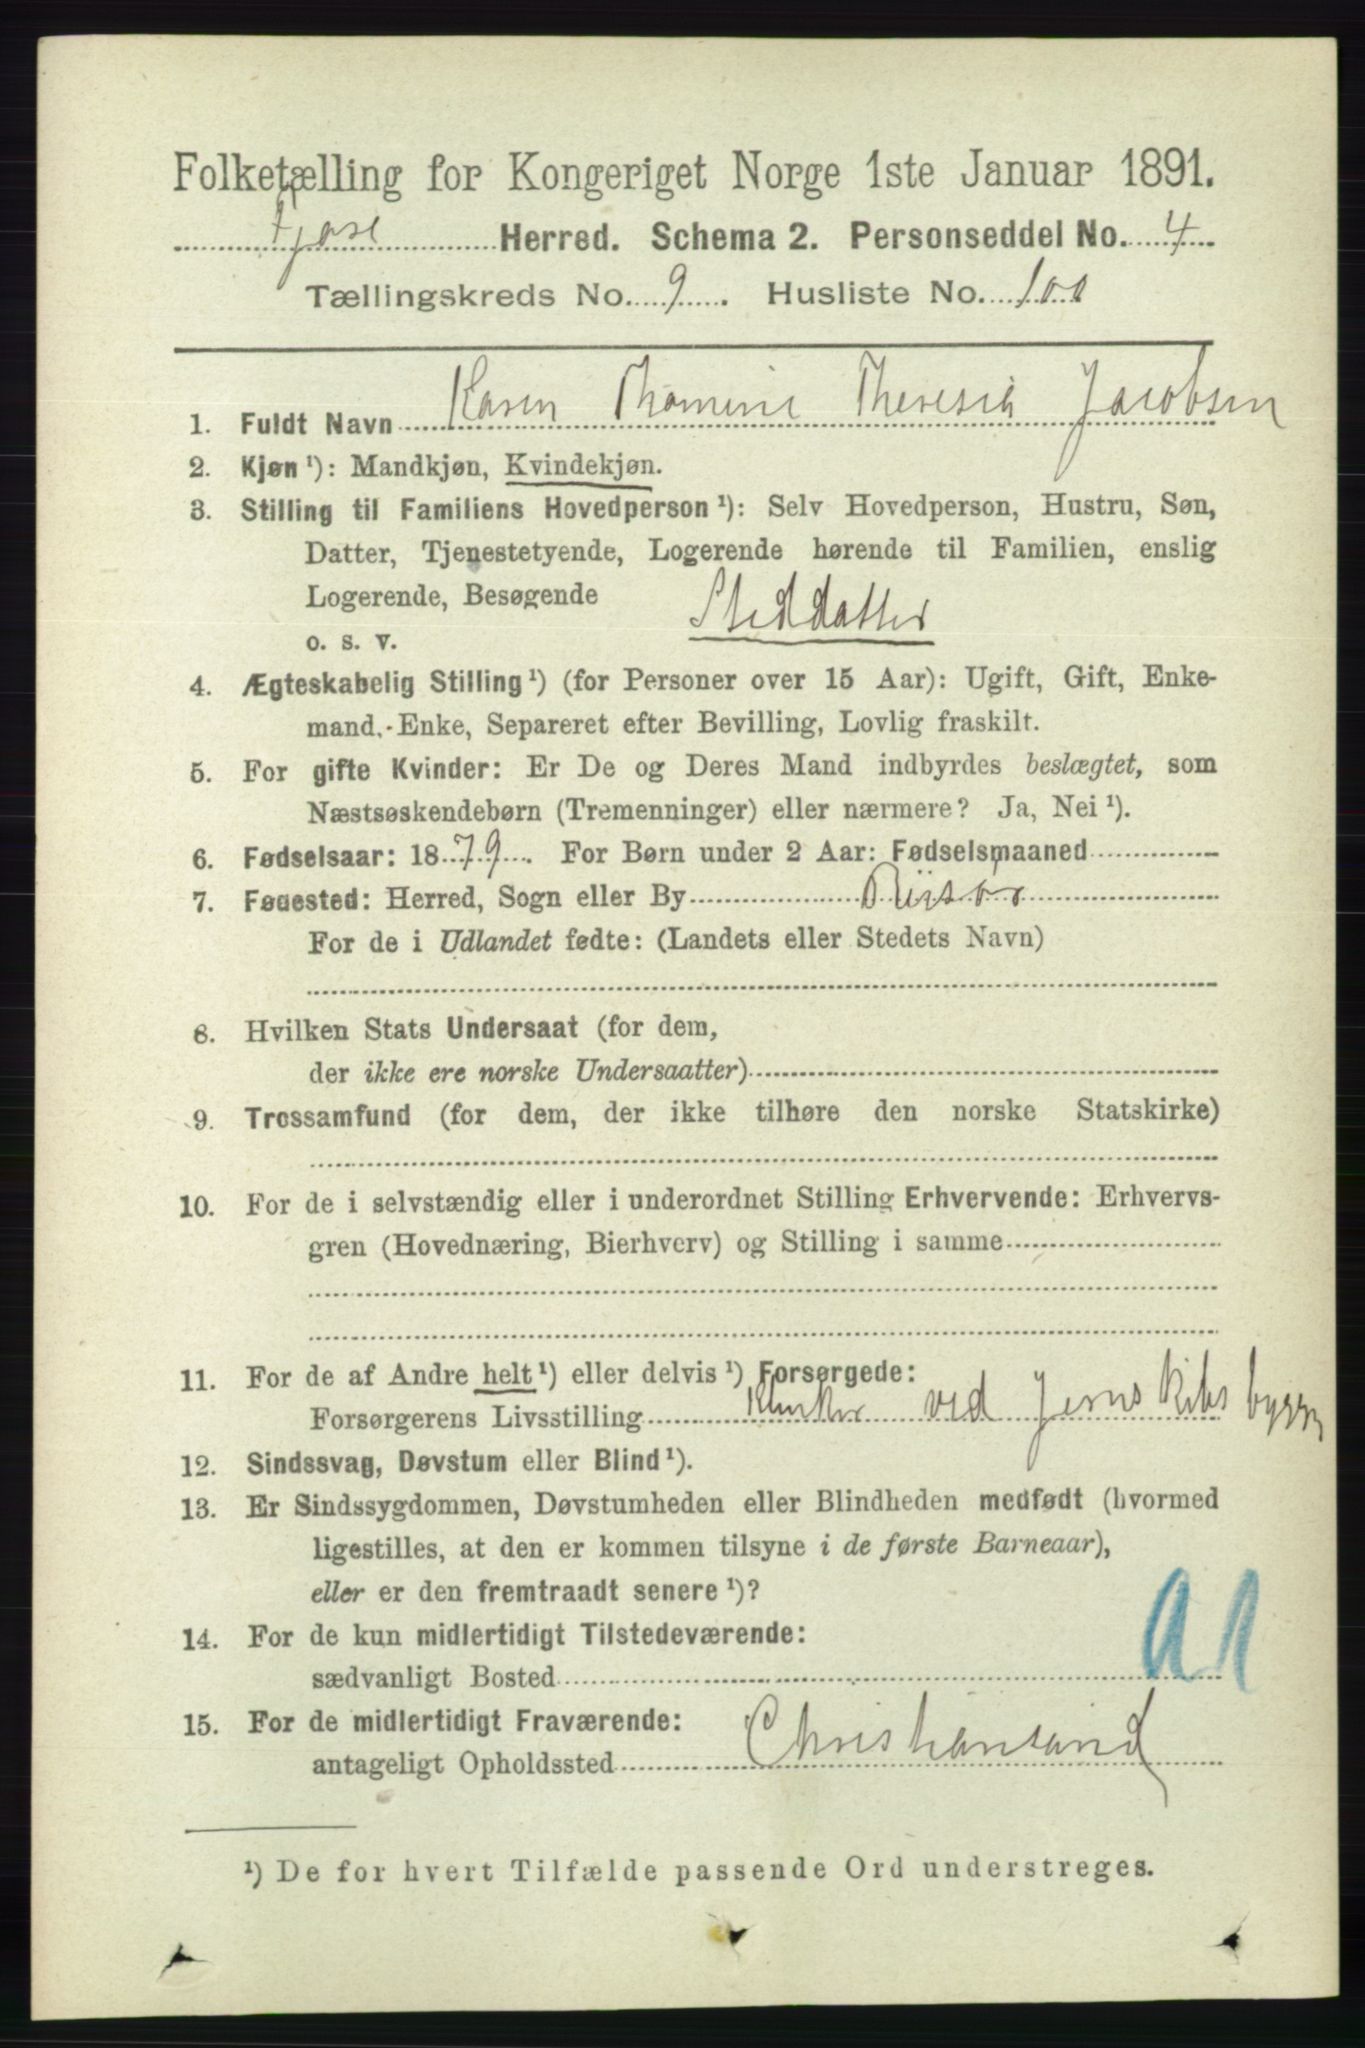 Folketælling for Kongeriget Norge 1ste Januar 1891.
Fjære Herred. Schema 2. Personseddel No. 4
Tællingskreds No. 9. Husliste No. 100
1. Fuldt Navn Karen Thomine Theresia Jacobsen
2. Kjøn ¹): Mandkjøn, Kvindekjøn.
3. Stilling til Familiens Hovedperson ¹): Selv Hovedperson, Hustru, Søn,
Datter, Tjenestetyende, Logerende hørende til Familien, enslig
Logerende, Besøgende
o. s. v. Steddatter
4. Ægteskabelig Stilling ¹) (for Personer over 15 Aar): Ugift, Gift, Enke-
mand, Enke, Separeret efter Bevilling, Lovlig fraskilt.
5. For gifte Kvinder: Er De og Deres Mand indbyrdes beslægtet, som
Næstsøskendebørn (Tremenninger) eller nærmere? Ja, Nei ¹).
6. Fødselsaar: 1879. For Børn under 2 Aar: Fødselsmaaned
7. Fødested: Herred, Sogn eller By Riisør
For de i Udlandet fødte: (Landets eller Stedets Navn)
8. Hvilken Stats Undersaat (for dem,
der ikke ere norske Undersaatter)
9. Trossamfund (for dem, der ikke tilhøre den norske Statskirke)
10. For de i selvstændig eller i underordnet Stilling Erhvervende: Erhvervs-
gren (Hovednæring, Bierhverv) og Stilling i samme
11. For de af Andre helt ¹) eller delvis ¹) Forsørgede:
Forsørgerens Livsstilling Klinker ved Jernskibsbygge
12. Sindssvag, Døvstum eller Blind ¹).
13. Er Sindssygdommen, Døvstumheden eller Blindheden medfødt (hvormed
ligestilles, at den er kommen tilsyne i de første Barneaar),
eller er den fremtraadt senere ¹)?
14. For de kun midlertidigt Tilstedeværende:
sædvanligt Bosted
15. For de midlertidigt Fraværende:
antageligt Opholdssted Christiansand
¹) De for hvert Tilfælde passende Ord understreges.